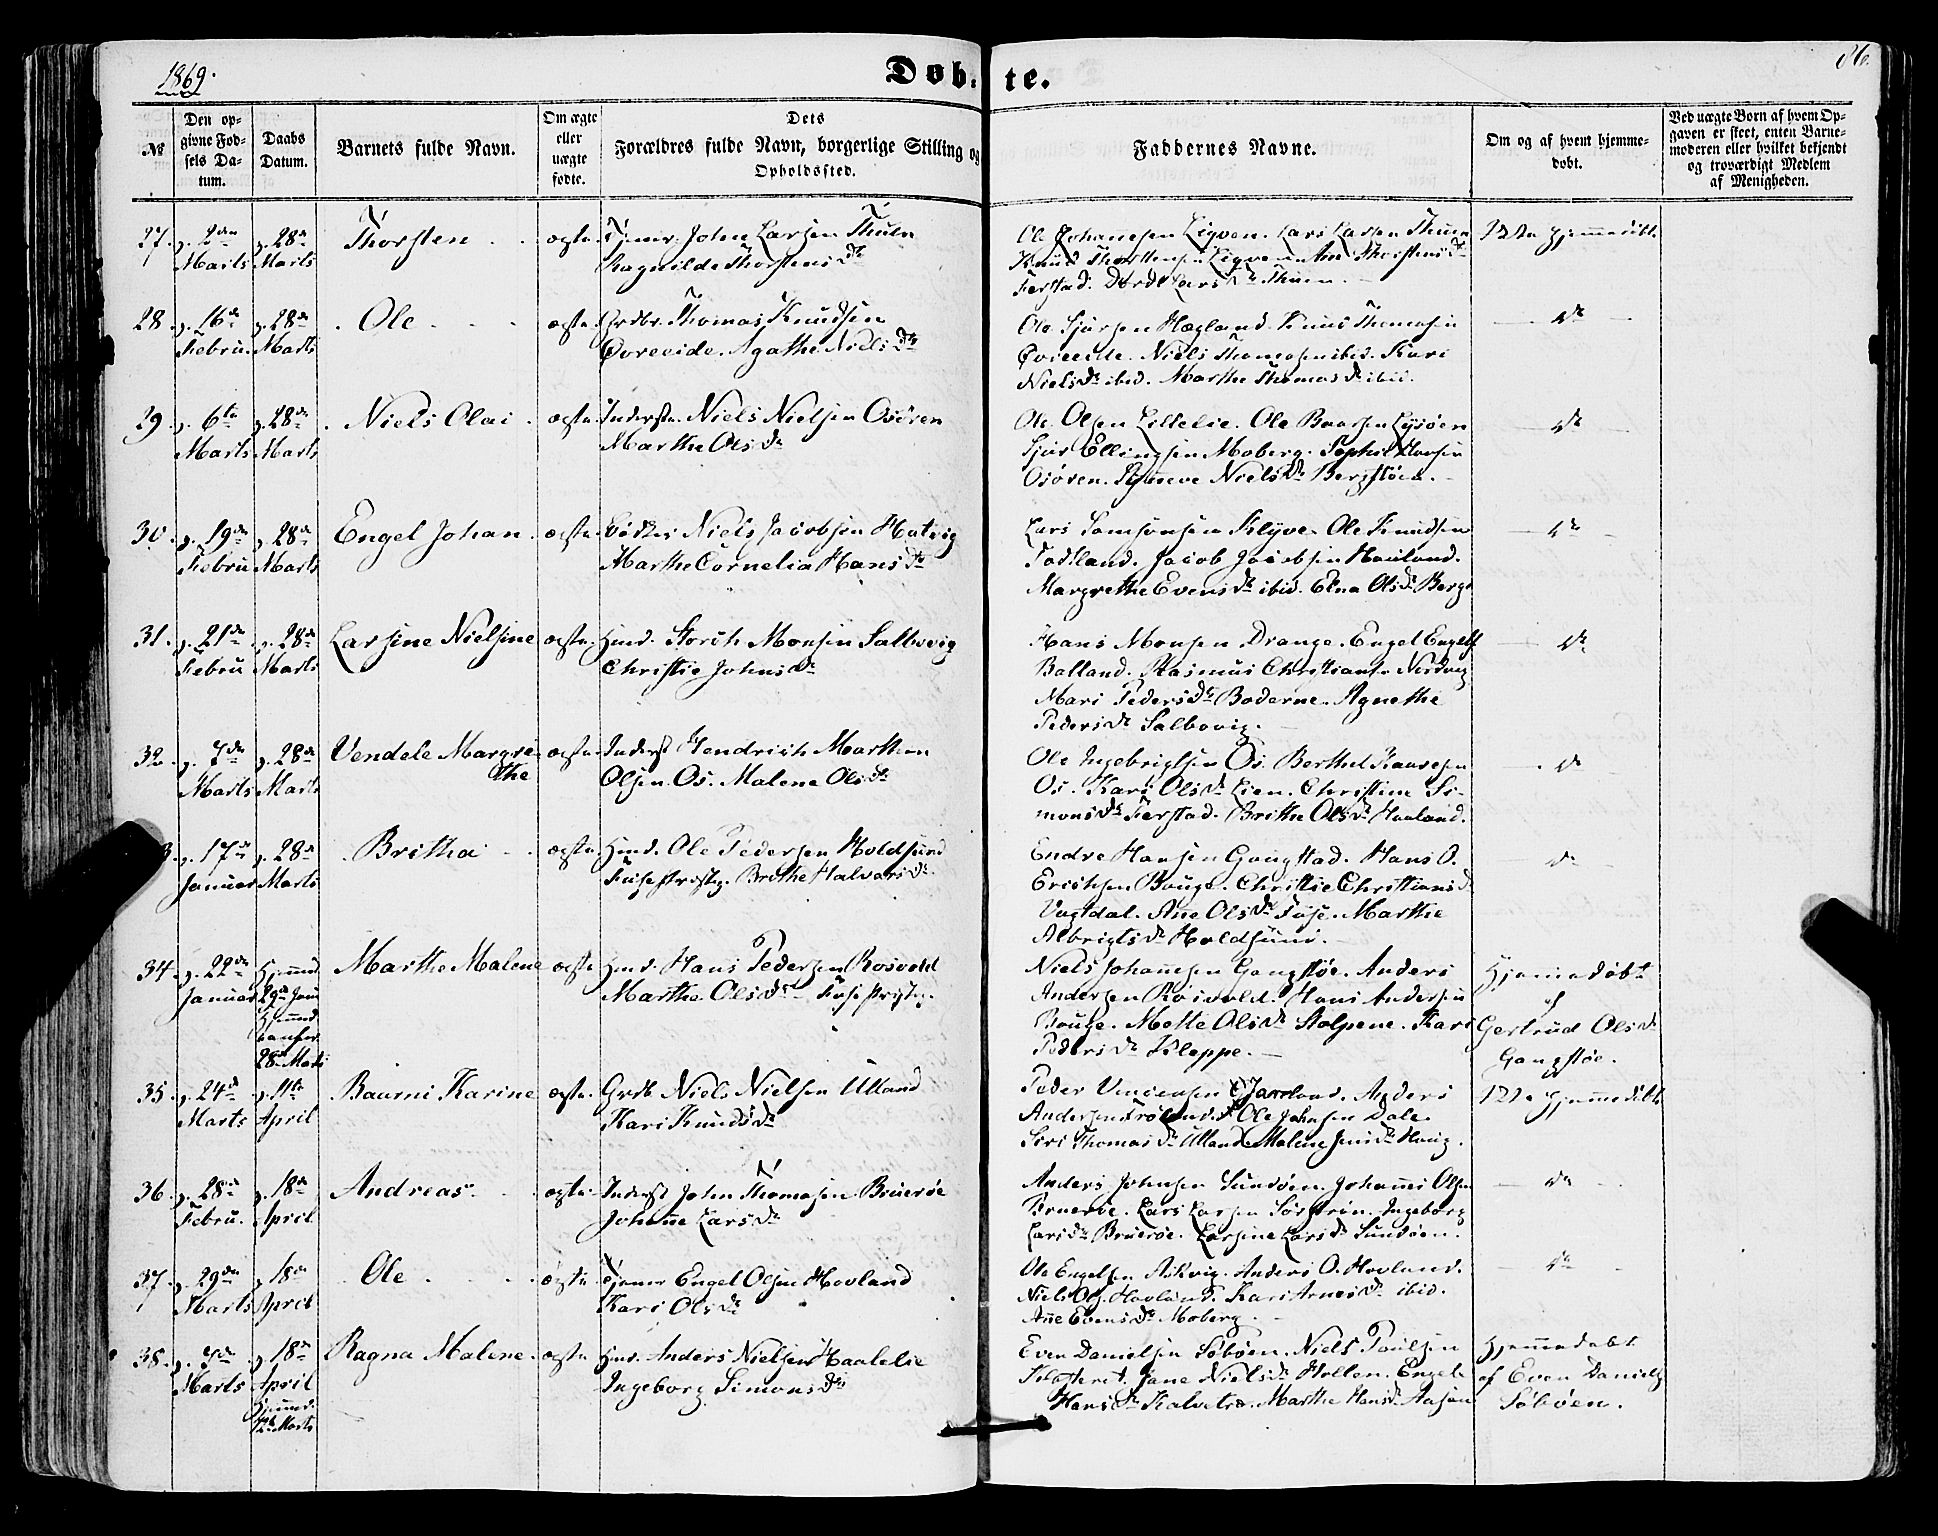 1869.
Døb-te.
86.
№
Den op-
givne Fød-
sels Da-
tum.
Daabs
Datum.
Barnets fulde Navn.
Om ægte
eller
uægte
fødte.
Dets
Forældres fulde Navn, borgerlige Stilling og
Opholdssted.
Faddernes Navne.
Om og af hvem hjemme-
døbt.
Ved uægte Børn af hvem Op-
gaven er skeet, enten Barne-
moderen eller hvilket bekjendt
og troværdigt Medlem
af Menigheden.
27. d. 2den Marts d. 28de Marts Thorsten ægte. Tjener John Larsen Thuen
Ragnilde Thorstensdr
Ole Johannesen Ligven. Lars Larsen Thuen
Knud Thorstensen Ligven Ane Thorstensdr
Ferstad. Dorde Larsdr Thuen.
Ikke hjemmedøbt.
28. d. 16de Febru. d. 28de Marts Ole ægte. Grdbr. Thomas Knudsen
Øvreeide. Agathe Nielsdr
Ole Sjursen Hægland. Knud Thomasen
Øvreeide. Niels Thomasen ibid. Kari
Nielsdr ibid. Marthe Thomasdr ibid.
do
29. d. 6te Marts d. 28de Marts Niels Olai ægte. Inderste. Niels Nielsen Osøren
Marthe Olsdr
Ole Olsen Littelie. Ole Baarsen Lysøen
Sjur Ellingsen Moberg. Sophie Hansen
Osøren. Synneve Nielsdr Bergstøen.
do
30. d. 19de Febru d. 28de Marts Engel Johan ægte. Bødker Niels Jacobsen Hatvig
Marthe Cornelia Hansdr
Lars Samsonsen Klyve. Ole Knudsen
Tadtland. Jacob Jacobsen Hauland.
Margrethe Evensdr ibid. Elna Olsdr Berge
do
31. d. 21de Febru d. 28de Marts Larsine Nielsine ægte. Hmd. Storch Monsen Salbovig
Christie Johnsdr
Hans Monsen Drange. Engel Engels.
Balland. Rasmus Christians. Nordvig
Mari Pedersdr Boderne. Agnethe
Pedersdr Salbovig.
do
32. d. 7de Marts d. 28de Marts Vendele Margre-
the ægte. Inderst Hendrich Marthen
Olsen Os. Malene Olsdr
Ole Ingebrigtsen Os. Berthel Hansen
Os. Kari Olsdr Lien. Christine Si-
monsdr Ferstad. Brithe Olsdr Hauland.
do
3. d. 17de Januar d. 28de Marts Britha ægte. Hmd. Ole Pedersen Holdsund
Fuse Prstgj. Brithe Halvorsdr
Endre Hansen Gangstad. Hans O.
Erichsen Bouge. Christie Christiansdr
Vagtdal. Ane Olsdr Fuse. Marthe
Albrigtsdr Holdsund.
do
34. d. 22de Januar Hjemmd. 29de Janu Hjemmd. confir. 28de Marts Marthe Malene ægte Hmd. Hans Pedersen Rosvold
Marthe Olsdr Fuse Prstgj.
Niels Johannesen Gangstøe. Anders
Andersen Rosvold. Hans Andersen
Bouge. Mette Olsdr Stolpene. Kari
Pedersdr Kleppe.
Hjemmedøbt
af
Gertrud Olsdr
Gangstøe.
35. d. 24de Marts d. 11te April Baurni Karine ægte. Grdb Niels Nielsen Ulland
Kari Knudsdr
Peder Vincensen Hjarland. Anders
Andersen Frøland. Ole Johnsen Dale.
Siri Thomasdr Ulland. Malene Jensdr Haug.
Ikke hjemmedøbt
36. d. 28de Febru. d. 18de April Andreas ægte. Inderst John Thomasen Bruerøe
Johanne Larsdr
Anders Johnsen Sundøen. Johannes Olsen
Bruerøe. Lars Larsen Sørstrøn. Ingeborg
Larsdr Bruerøe. Larsine Larsdr Sundøen.
do
37. d. 29de Marts d. 18de April Ole ægte Tjener Engel Olsen Hovland
Kari Olsdr
Ole Engelsen Askvig. Anders O. Hovland.
Niels Ols. Hovland. Kari Arnesdr ibid.
Ane Evensdr Moberg.
do
38. d. 7de Marts d. 18de April Hjemmd. 7de Marts Ragna Malene. ægte Hmd. Anders Nielsen Haalelie
Ingeborg Simonsdr
Even Danielsen Søbøen. Niels Poulsen
Klosteret. Jane Nielsdr Hollen. Engele
Hansdr Kalvetræ. Marthe Hansdr Aasen
Hjemmedøbt
af Even Daniels.
Søbøen.